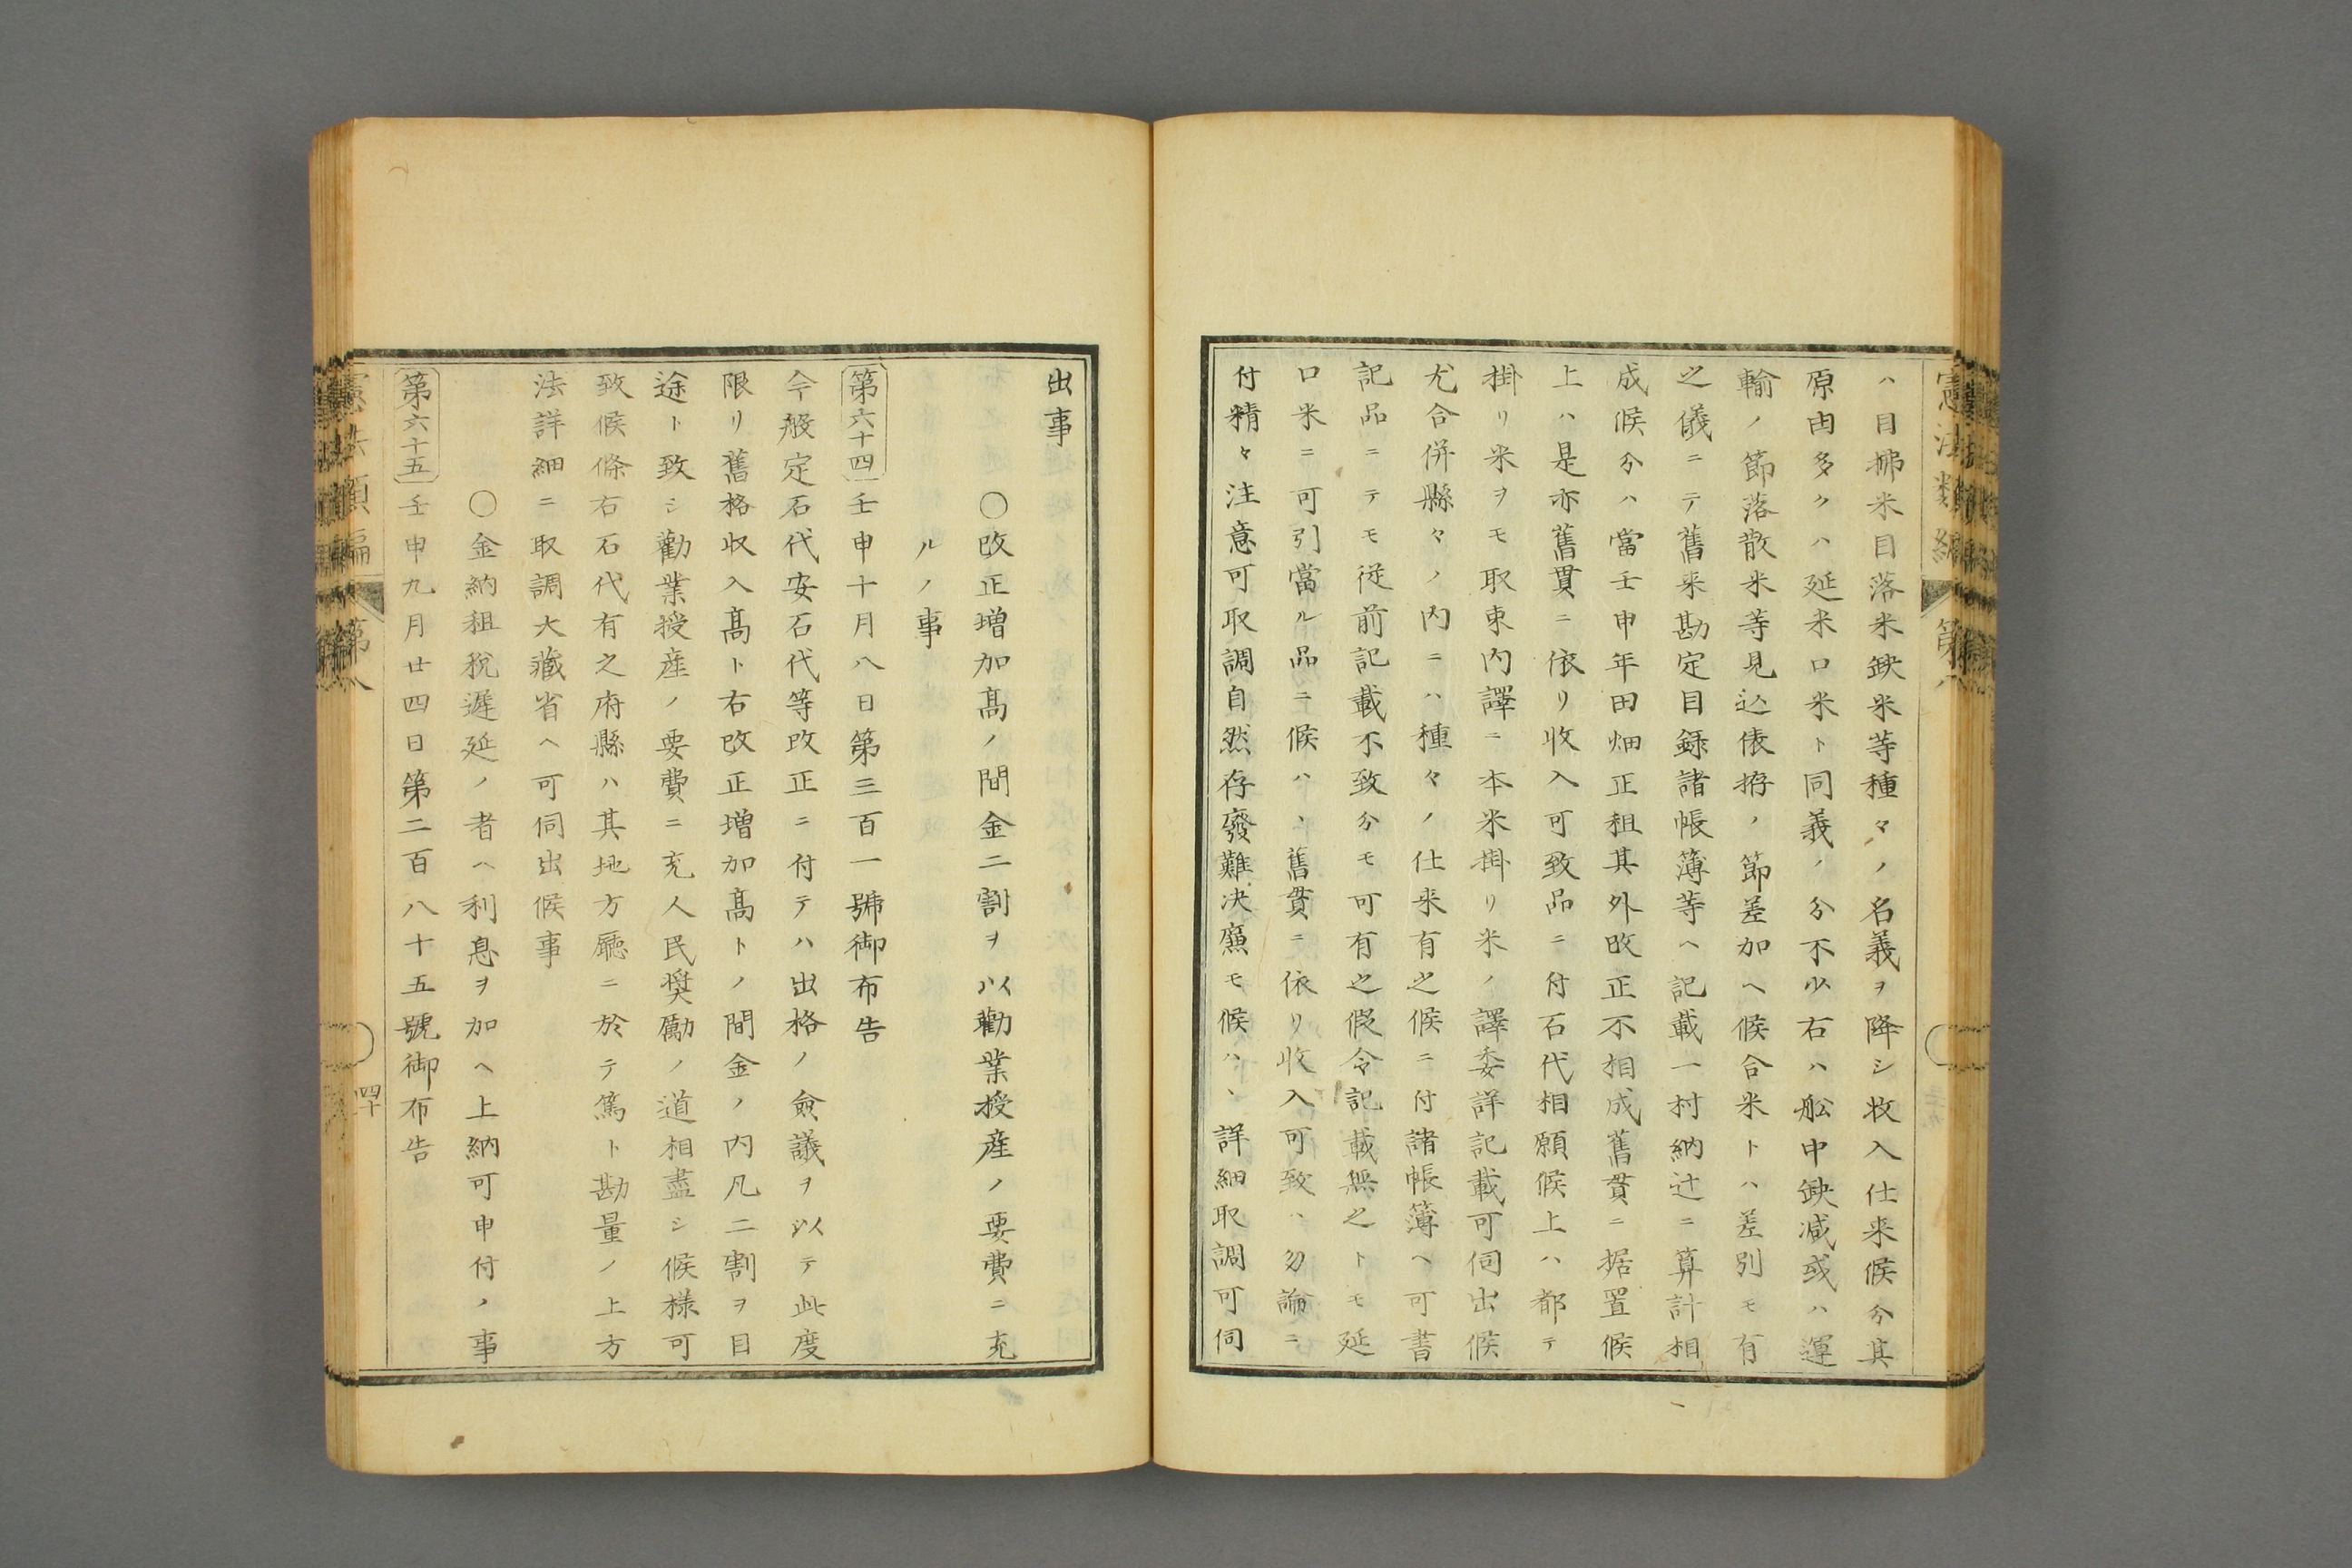 憲法類編 第八
ハ目拂米目落米缺米等種々ノ名義ヲ降シ收入仕来候分其
原由多クハ延米口米ト同義ノ分不少右ハ舩中缺减或ハ運
輸ノ節落散米等見込俵拵ノ節差加ヘ候合米トハ差別モ有
之儀ニテ舊来勘定目録諸帳簿等ヘ記載一村納辻ニ算計相
成候分ハ當壬申年田畑正租其外改正不相成舊貫ニ据置候
上ハ是亦舊貫ニ依リ收入可致品ニ付石代相願候上ハ都テ
掛リ米ヲモ取束内譯ニ本米掛リ米ノ譯委詳記載可伺出候
尤合併縣々ノ内ニハ種々ノ仕来有之候ニ付諸帳簿ヘ可書
記品ニテモ従前記載不致分モ可有之假令記載無之トモ延
口米ニ可引當ル品ニ候ハヽ舊貫ニ依リ收入可致ハ勿論ニ
付精々注意可取調自然存廢難决廉モ候ハヽ詳細取調可伺
出事
○改正増加髙ノ間金二割ヲ以勸業授産ノ要費ニ充
ルノ事
第六十四 壬申十月八日第三百一號御布告
今般定石代安石代等改正ニ付テハ出格ノ僉議ヲ以テ此度
限リ舊格収入髙ト右改正増加髙トノ間金ノ内凡二割ヲ目
途ト致シ勸業授産ノ要費ニ充人民奨勵ノ道相盡シ候様可
致候條右石代有之府縣ハ其地方廳ニ於テ篤ト勘量ノ上方
法詳細ニ取調大藏省ヘ可伺出候事
○金納租税遲延ノ者ヘ利息ヲ加ヘ上納可申付ノ事
第六十五 壬申九月廿四日第二百八十五號御布告
憲法類編 第八
四十